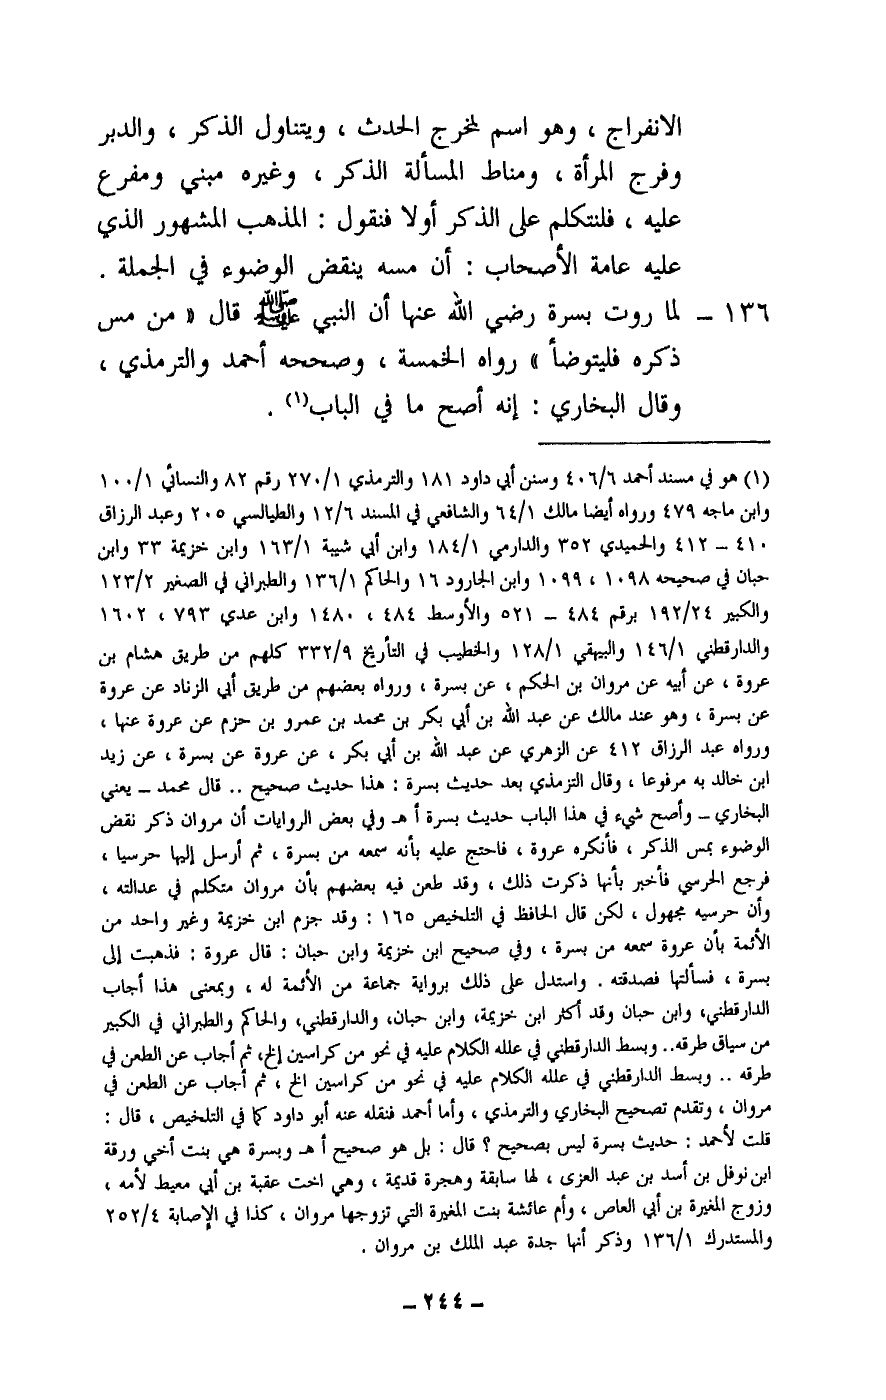 الانفراج ، وهو اسم لمخرج الحدث ، ويتناول الذكر ، والدبر
وفرج المرأة ، ومناط المسألة الذكر ، وغيره مبني ومفرع
عليه ، فلنتكلم على الذكر أولا فنقول : المذهب المشهور الذي
عليه عامة الأصحاب : أن مسه ينقض الوضوء في الجملة .
١٣٦ – لما روت بسرة رضي الله عنها أن النبي ﷺ قال « من مس
ذكره فليتوضأ » رواه الخمسة ، وصححه أحمد والترمذي ،
وقال البخاري : إنه أصح ما في الباب(١) .
(١) هو في مسند أحمد ٤٠٦/٦ وسنن أبي داود ١٨١ والترمذي ٢٧٠/١ رقم ٨٢ والنسائي ١٠٠/١
وابن ماجه ٤٧٩ ورواه أيضا مالك ٦٤/١ والشافعي في المسند ١٢/٦ والطيالسي ٢٠٥ وعبد الرزاق
٤١٠ – ٤١٢ والحميدي ٣٥٢ والدارمي ١٨٤/١ وابن أبي شيبة ١٦٣/١ وابن خزيمة ٣٣ وابن
حبان في صحيحه ١٠٩٨ ، ١٠٩٩ وابن الجارود ١٦ والحاكم ١٣٦/١ والطبراني في الصغير ١٢٣/٢
والكبير ١٩٢/٢٤ برقم ٤٨٤ – ٥٢١ والأوسط ٤٨٤ ، ١٤٨٠ وابن عدي ٧٩٣ ، ١٦٠٢
والدارقطني ١٤٦/١ والبيهقي ١٢٨/١ والخطيب في التأريخ ٣٣٢/٩ كلهم من طريق هشام بن
عروة ، عن أبيه عن مروان بن الحكم ، عن بسرة ، ورواه بعضهم من طريق أبي الزناد عن عروة
عن بسرة ، وهو عند مالك عن عبد الله بن أبي بكر بن محمد بن عمرو بن حزم عن عروة عنها ،
ورواه عبد الرزاق ٤١٢ عن الزهري عن عبد الله بن أبي بكر ، عن عروة عن بسرة ، عن زيد
ابن خالد به مرفوعا ، وقال الترمذي بعد حديث بسرة : هذا حديث صحيح .. قال محمد – يعني
البخاري – وأصح شيء في هذا الباب حديث بسرة أ هـ وفي بعض الروايات أن مروان ذكر نقض
الوضوء بمس الذكر ، فأنكره عروة ، فاحتج عليه بأنه سمعه من بسرة ، ثم أرسل إليها حرسيا ،
فرجع الحرسي فأخبر بأنها ذكرت ذلك ، وقد طعن فيه بعضهم بأن مروان متكلم في عدالته ،
وأن حرسيه مجهول ، لكن قال الحافظ في التلخيص ١٦٥ : وقد جزم ابن خزيمة وغير واحد من
الأئمة بأن عروة سمعه من بسرة ، وفي صحيح ابن خزيمة وابن حبان : قال عروة : فذهبت إلى
بسرة ، فسألتها فصدقته . واستدل على ذلك برواية جماعة من الأئمة له ، وبمعنى هذا أجاب
الدارقطني، وابن حبان وقد أكثر ابن خزيمة، وابن حبان، والدارقطني، والحاكم والطبراني في الكبير
من سياق طرقه.. وبسط الدارقطني في علله الكلام عليه في نحو من كراسين إلخ، ثم أجاب عن الطعن في
طرقه .. وبسط الدارقطني في علله الكلام عليه في نحو من كراسين الخ ، ثم أجاب عن الطعن في
مروان ، وتقدم تصحيح البخاري والترمذي ، وأما أحمد فنقله عنه أبو داود كما في التلخيص ، قال :
قلت لأحمد : حديث بسرة ليس بصحيح ؟ قال : بل هو صحيح أ هـ وبسرة هي بنت أخي ورقة
ابن نوفل بن أسد بن عبد العزى ، لها سابقة وهجرة قديمة ، وهي اخت عقبة بن أبي معيط لأمه ،
وزوج المغيرة بن أبي العاص ، وأم عائشة بنت المغيرة التي تزوجها مروان ، كذا في الإصابة ٢٥٢/٤
والمستدرك ١٣٦/١ وذكر أنها جدة عبد الملك بن مروان .
– ٢٤٤ –